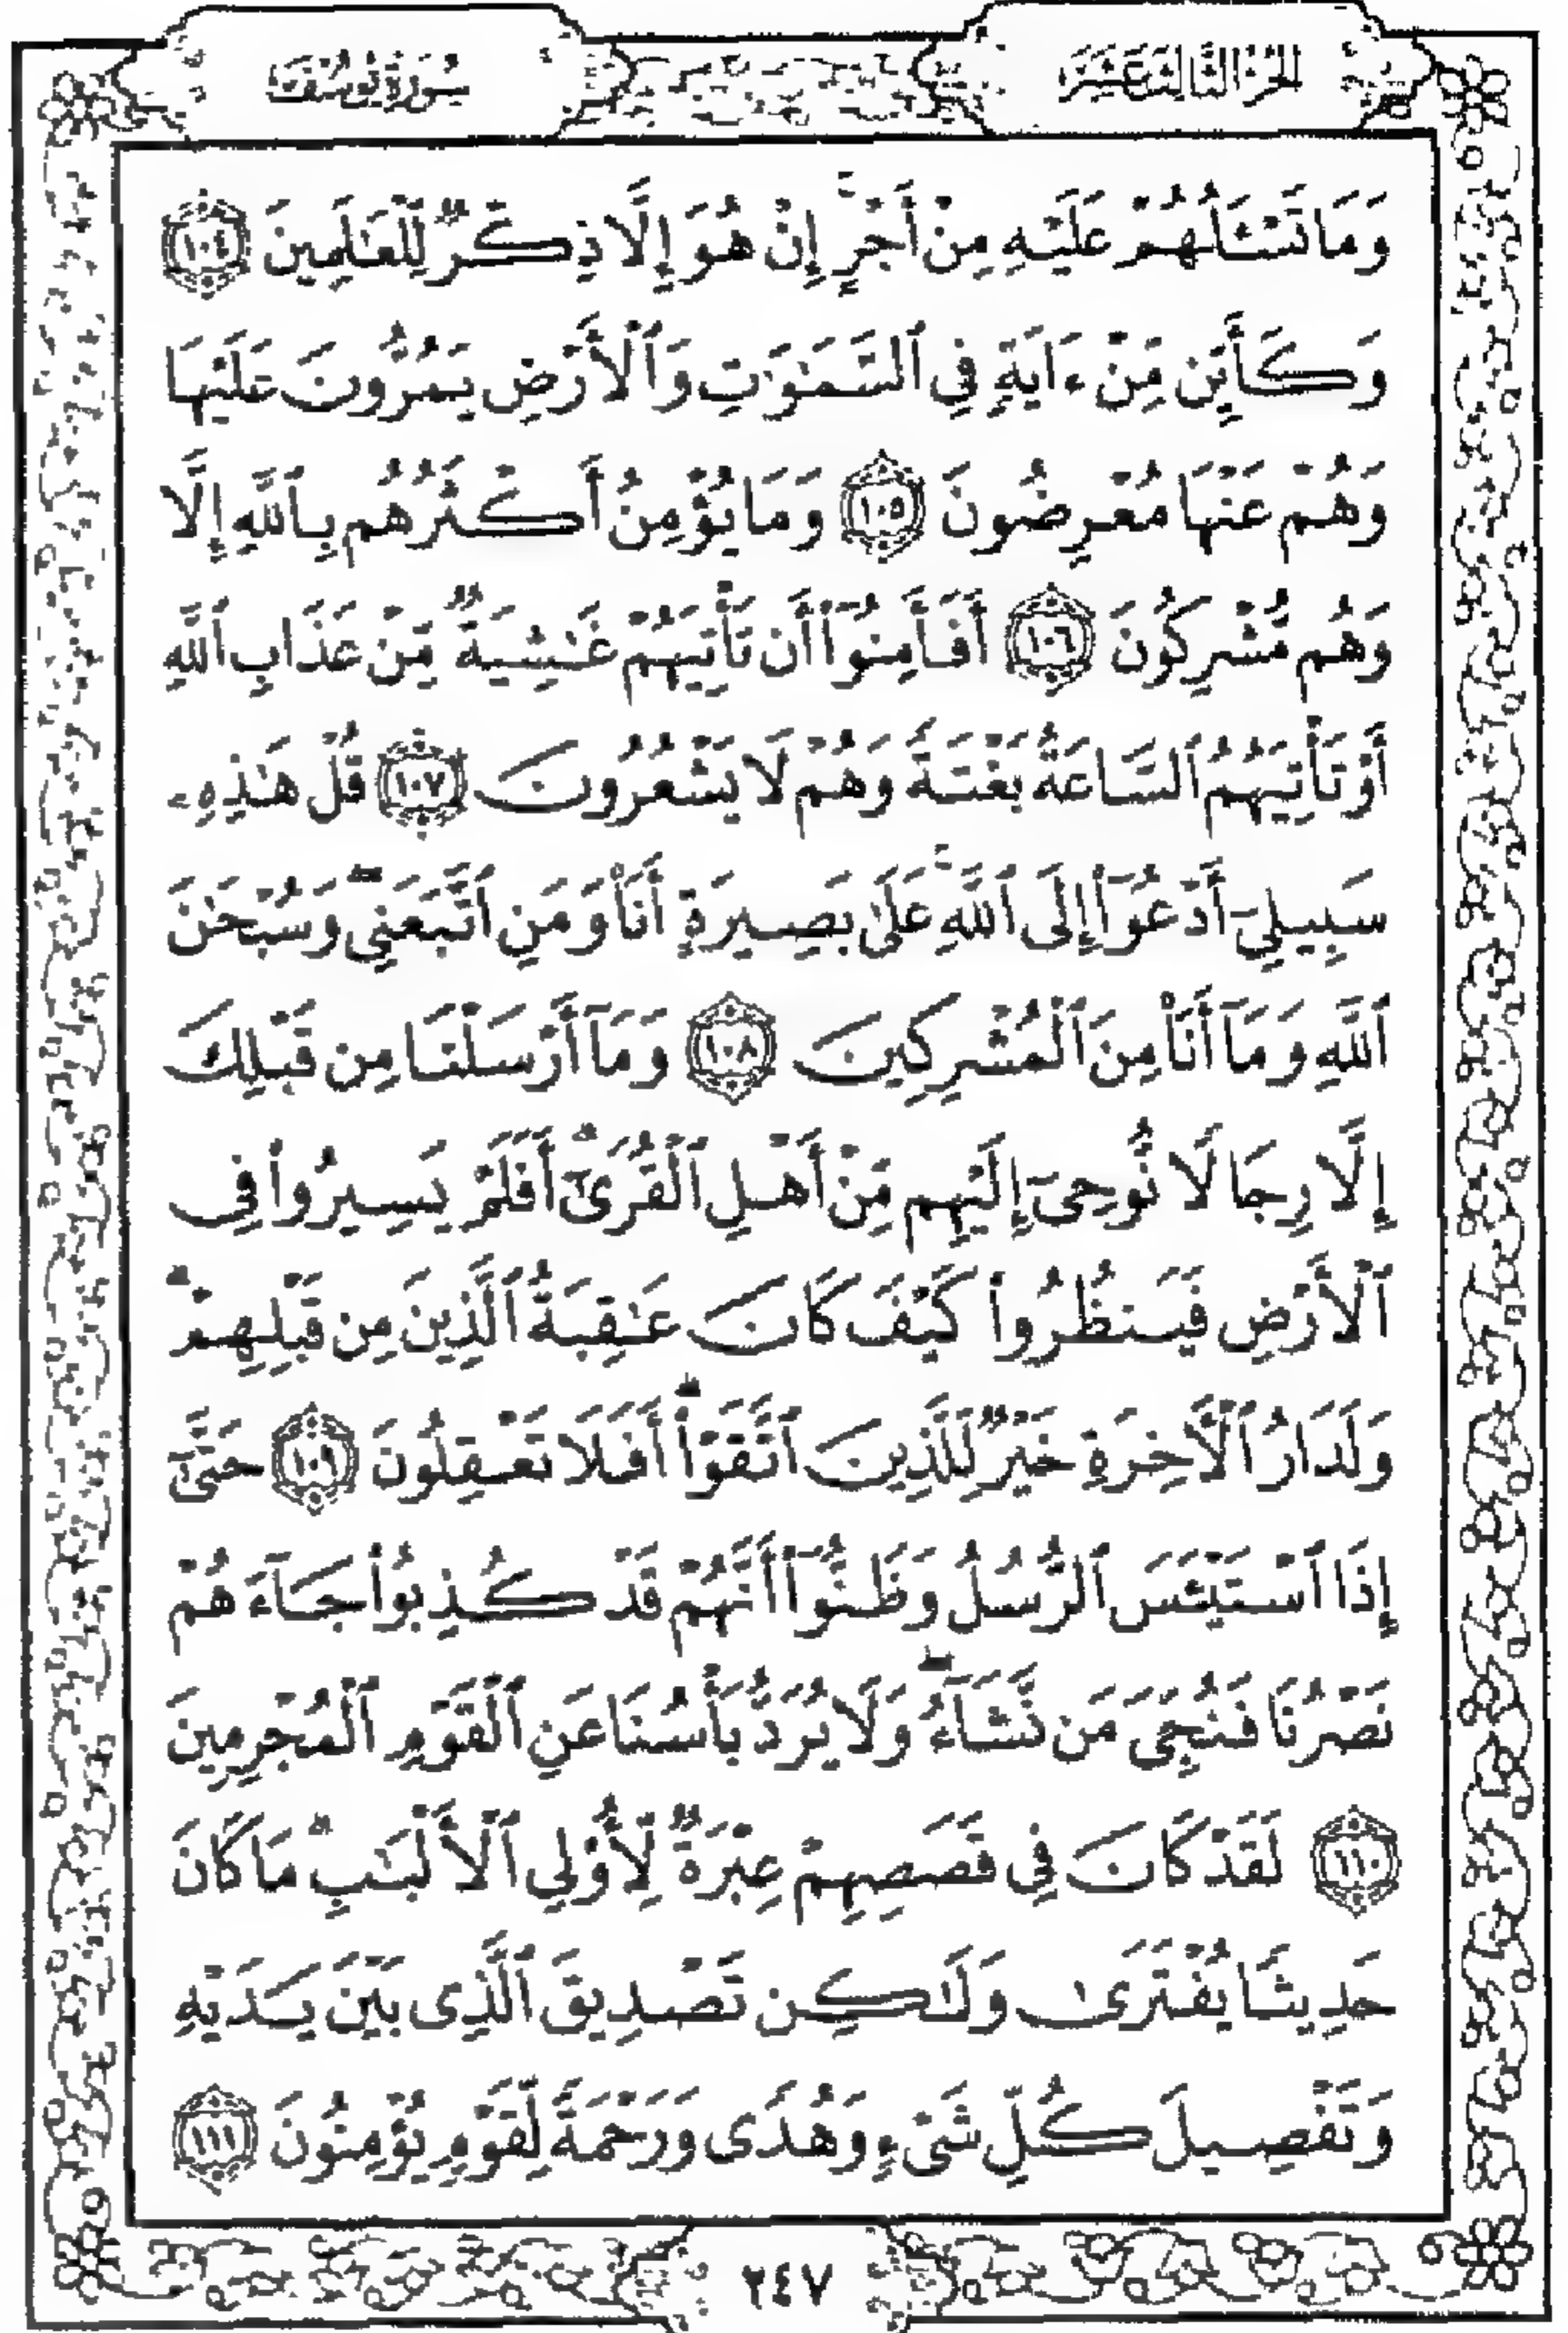 الجزء الثالث عشر
سورة يوسف
وَمَا تَسْـَٔلُهُمْ عَلَيْهِ مِنْ أَجْرٍ ۚ إِنْ هُوَ إِلَّا ذِكْرٌ لِّلْعَـٰلَمِينَ ١٠٤
وَكَأَيِّن مِّنْ ءَايَةٍ فِي ٱلسَّمَـٰوَٰتِ وَٱلْأَرْضِ يَمُرُّونَ عَلَيْهَا
وَهُمْ عَنْهَا مُعْرِضُونَ ١٠٥ وَمَا يُؤْمِنُ أَكْثَرُهُم بِٱللَّهِ إِلَّا
وَهُم مُّشْرِكُونَ ١٠٦ أَفَأَمِنُوٓا۟ أَن تَأْتِيَهُمْ غَـٰشِيَةٌ مِّنْ عَذَابِ ٱللَّهِ
أَوْ تَأْتِيَهُمُ ٱلسَّاعَةُ بَغْتَةً وَهُمْ لَا يَشْعُرُونَ ١٠٧ قُلْ هَـٰذِهِۦ
سَبِيلِيٓ أَدْعُوٓا۟ إِلَى ٱللَّهِ ۚ عَلَىٰ بَصِيرَةٍ أَنَا۠ وَمَنِ ٱتَّبَعَنِي ۖ وَسُبْحَـٰنَ
ٱللَّهِ وَمَآ أَنَا۠ مِنَ ٱلْمُشْرِكِينَ ١٠٨ وَمَآ أَرْسَلْنَا مِن قَبْلِكَ
إِلَّا رِجَالًا نُّوحِيٓ إِلَيْهِم مِّنْ أَهْلِ ٱلْقُرَىٰٓ ۗ أَفَلَمْ يَسِيرُوا۟ فِي
ٱلْأَرْضِ فَيَنظُرُوا۟ كَيْفَ كَانَ عَـٰقِبَةُ ٱلَّذِينَ مِن قَبْلِهِمْ ۗ
وَلَدَارُ ٱلْـَٔاخِرَةِ خَيْرٌ لِّلَّذِينَ ٱتَّقَوْا۟ ۗ أَفَلَا تَعْقِلُونَ ١٠٩ حَتَّىٰٓ
إِذَا ٱسْتَيْـَٔسَ ٱلرُّسُلُ وَظَنُّوٓا۟ أَنَّهُمْ قَدْ كُذِبُوا۟ جَآءَهُمْ
نَصْرُنَا فَنُجِّيَ مَن نَّشَآءُ ۖ وَلَا يُرَدُّ بَأْسُنَا عَنِ ٱلْقَوْمِ ٱلْمُجْرِمِينَ
١١٠ لَقَدْ كَانَ فِي قَصَصِهِمْ عِبْرَةٌ لِّأُو۟لِي ٱلْأَلْبَـٰبِ ۗ مَا كَانَ
حَدِيثًا يُفْتَرَىٰ وَلَـٰكِن تَصْدِيقَ ٱلَّذِي بَيْنَ يَدَيْهِ
وَتَفْصِيلَ كُلِّ شَيْءٍ وَهُدًى وَرَحْمَةً لِّقَوْمٍ يُؤْمِنُونَ ١١١
٢٤٧